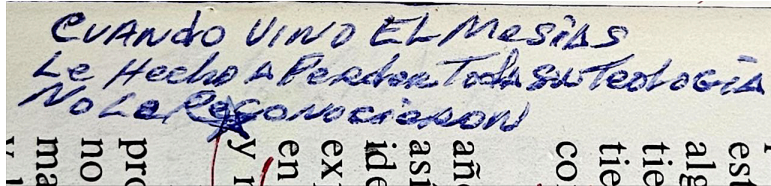 CUANDO VINO EL MESIAS
Le Hecho A Perder Toda Su Teología
No Le Reconocieron
pro
no
ma
y r
en
ex
ide
así
añ
co
tie
tie
alg
est